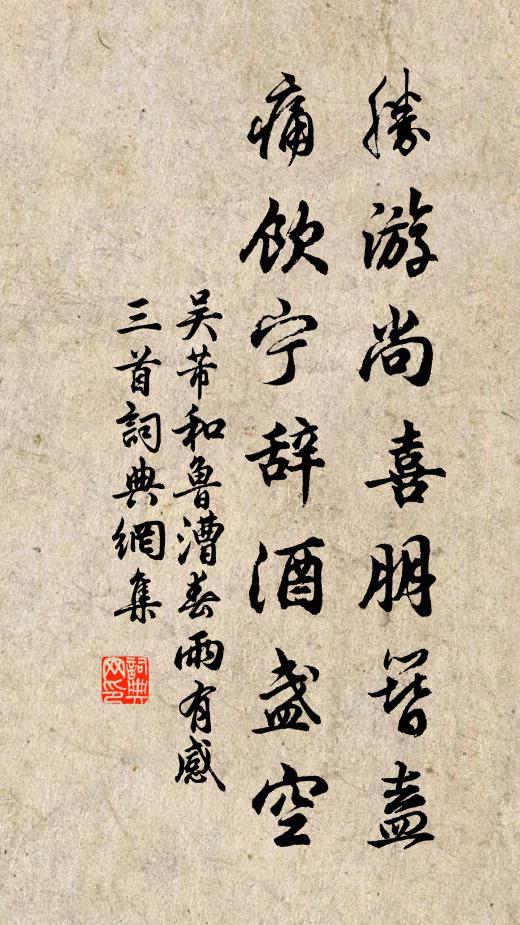 勝游尚喜朋簪盍
痛飲宁辞酒盏空
吴芾和魯漕春雨有感
三首詞典網集
詞典网印